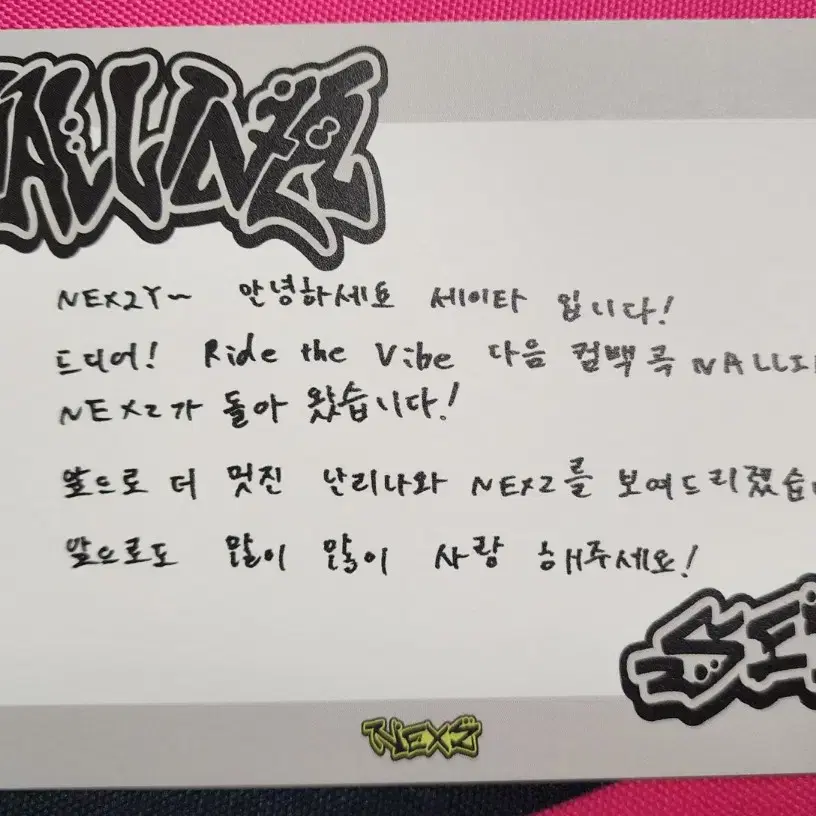 ALLINA
NEX2Y~ 안녕하세요 세이타 입니다!
드디어! Ride the Vibe 다음 컴백 곡 NALLI
NEXZ가 돌아 왔습니다!
앞으로 더 멋진 난리나와 NEXZ를 보여드리겠습
앞으로도 많이 많이 사랑 해주세요!
SE
NEXZ